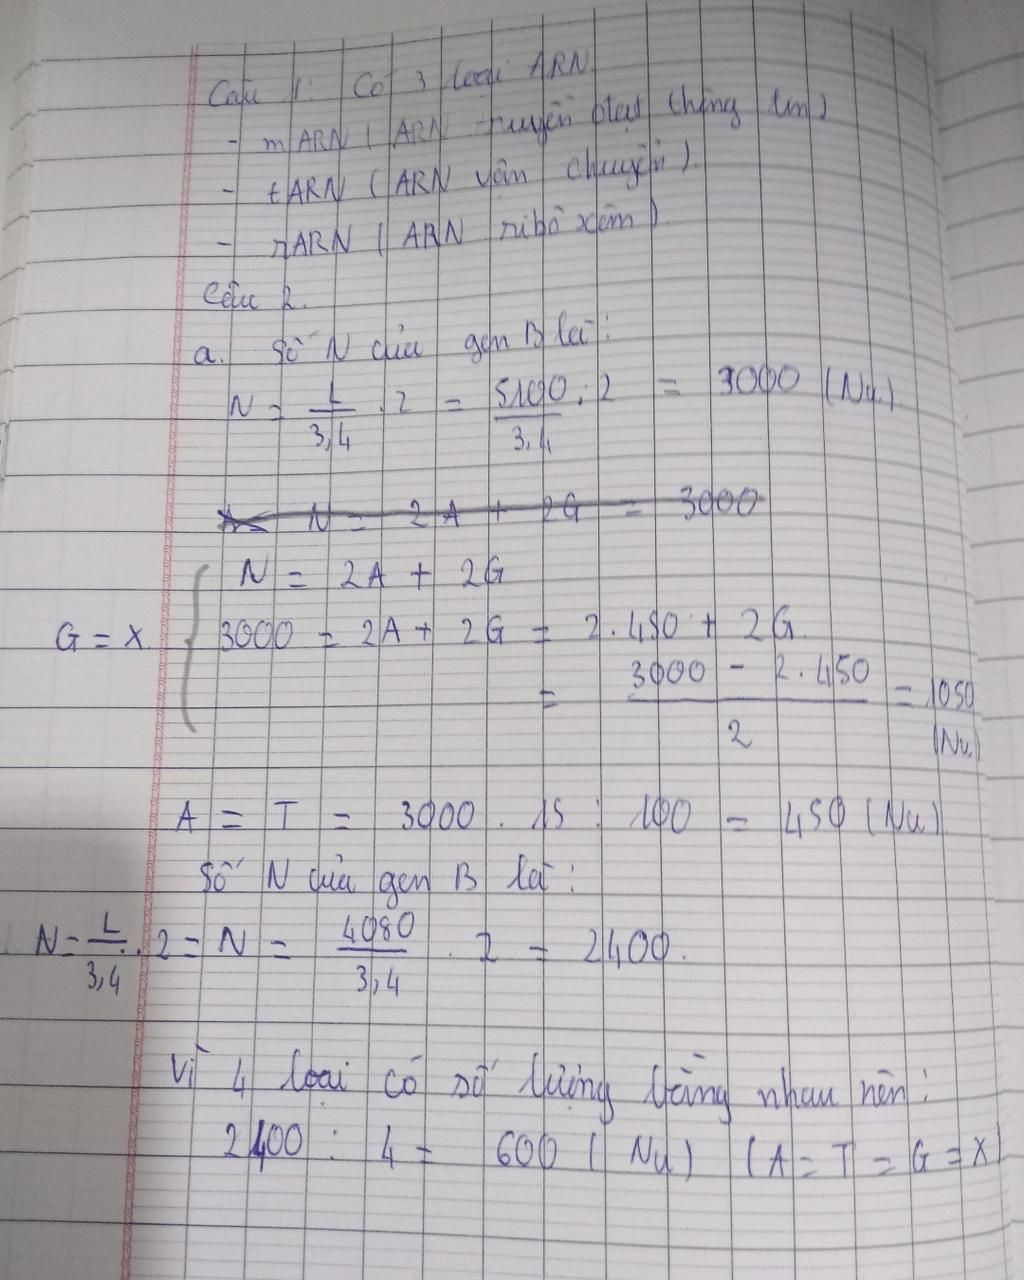 Câu 1: Có 3 loại ARN.
- mARN (ARN truyền đạt thông tin)
- tARN (ARN vận chuyển).
- rARN (ARN ribôxôm)
Câu 2.
a. Số N của gen B là:
N = L/3,4 . 2 = 5100/3,4 . 2 = 3000 (Nu)
N = 2A + 2G = 3000
N = 2A + 2G
G = X. 3000 = 2A + 2G = 2.450 + 2G.
= (3000 - 2.450)/2 = 1050 (Nu)
A = T = 3000 . 15 : 100 = 450 (Nu)
Số N của gen B là:
N = L/3,4 . 2 = N = 4080/3,4 . 2 = 2400.
Vì 4 loại có số lượng bằng nhau nên:
2400 : 4 = 600 (Nu) (A = T = G = X)